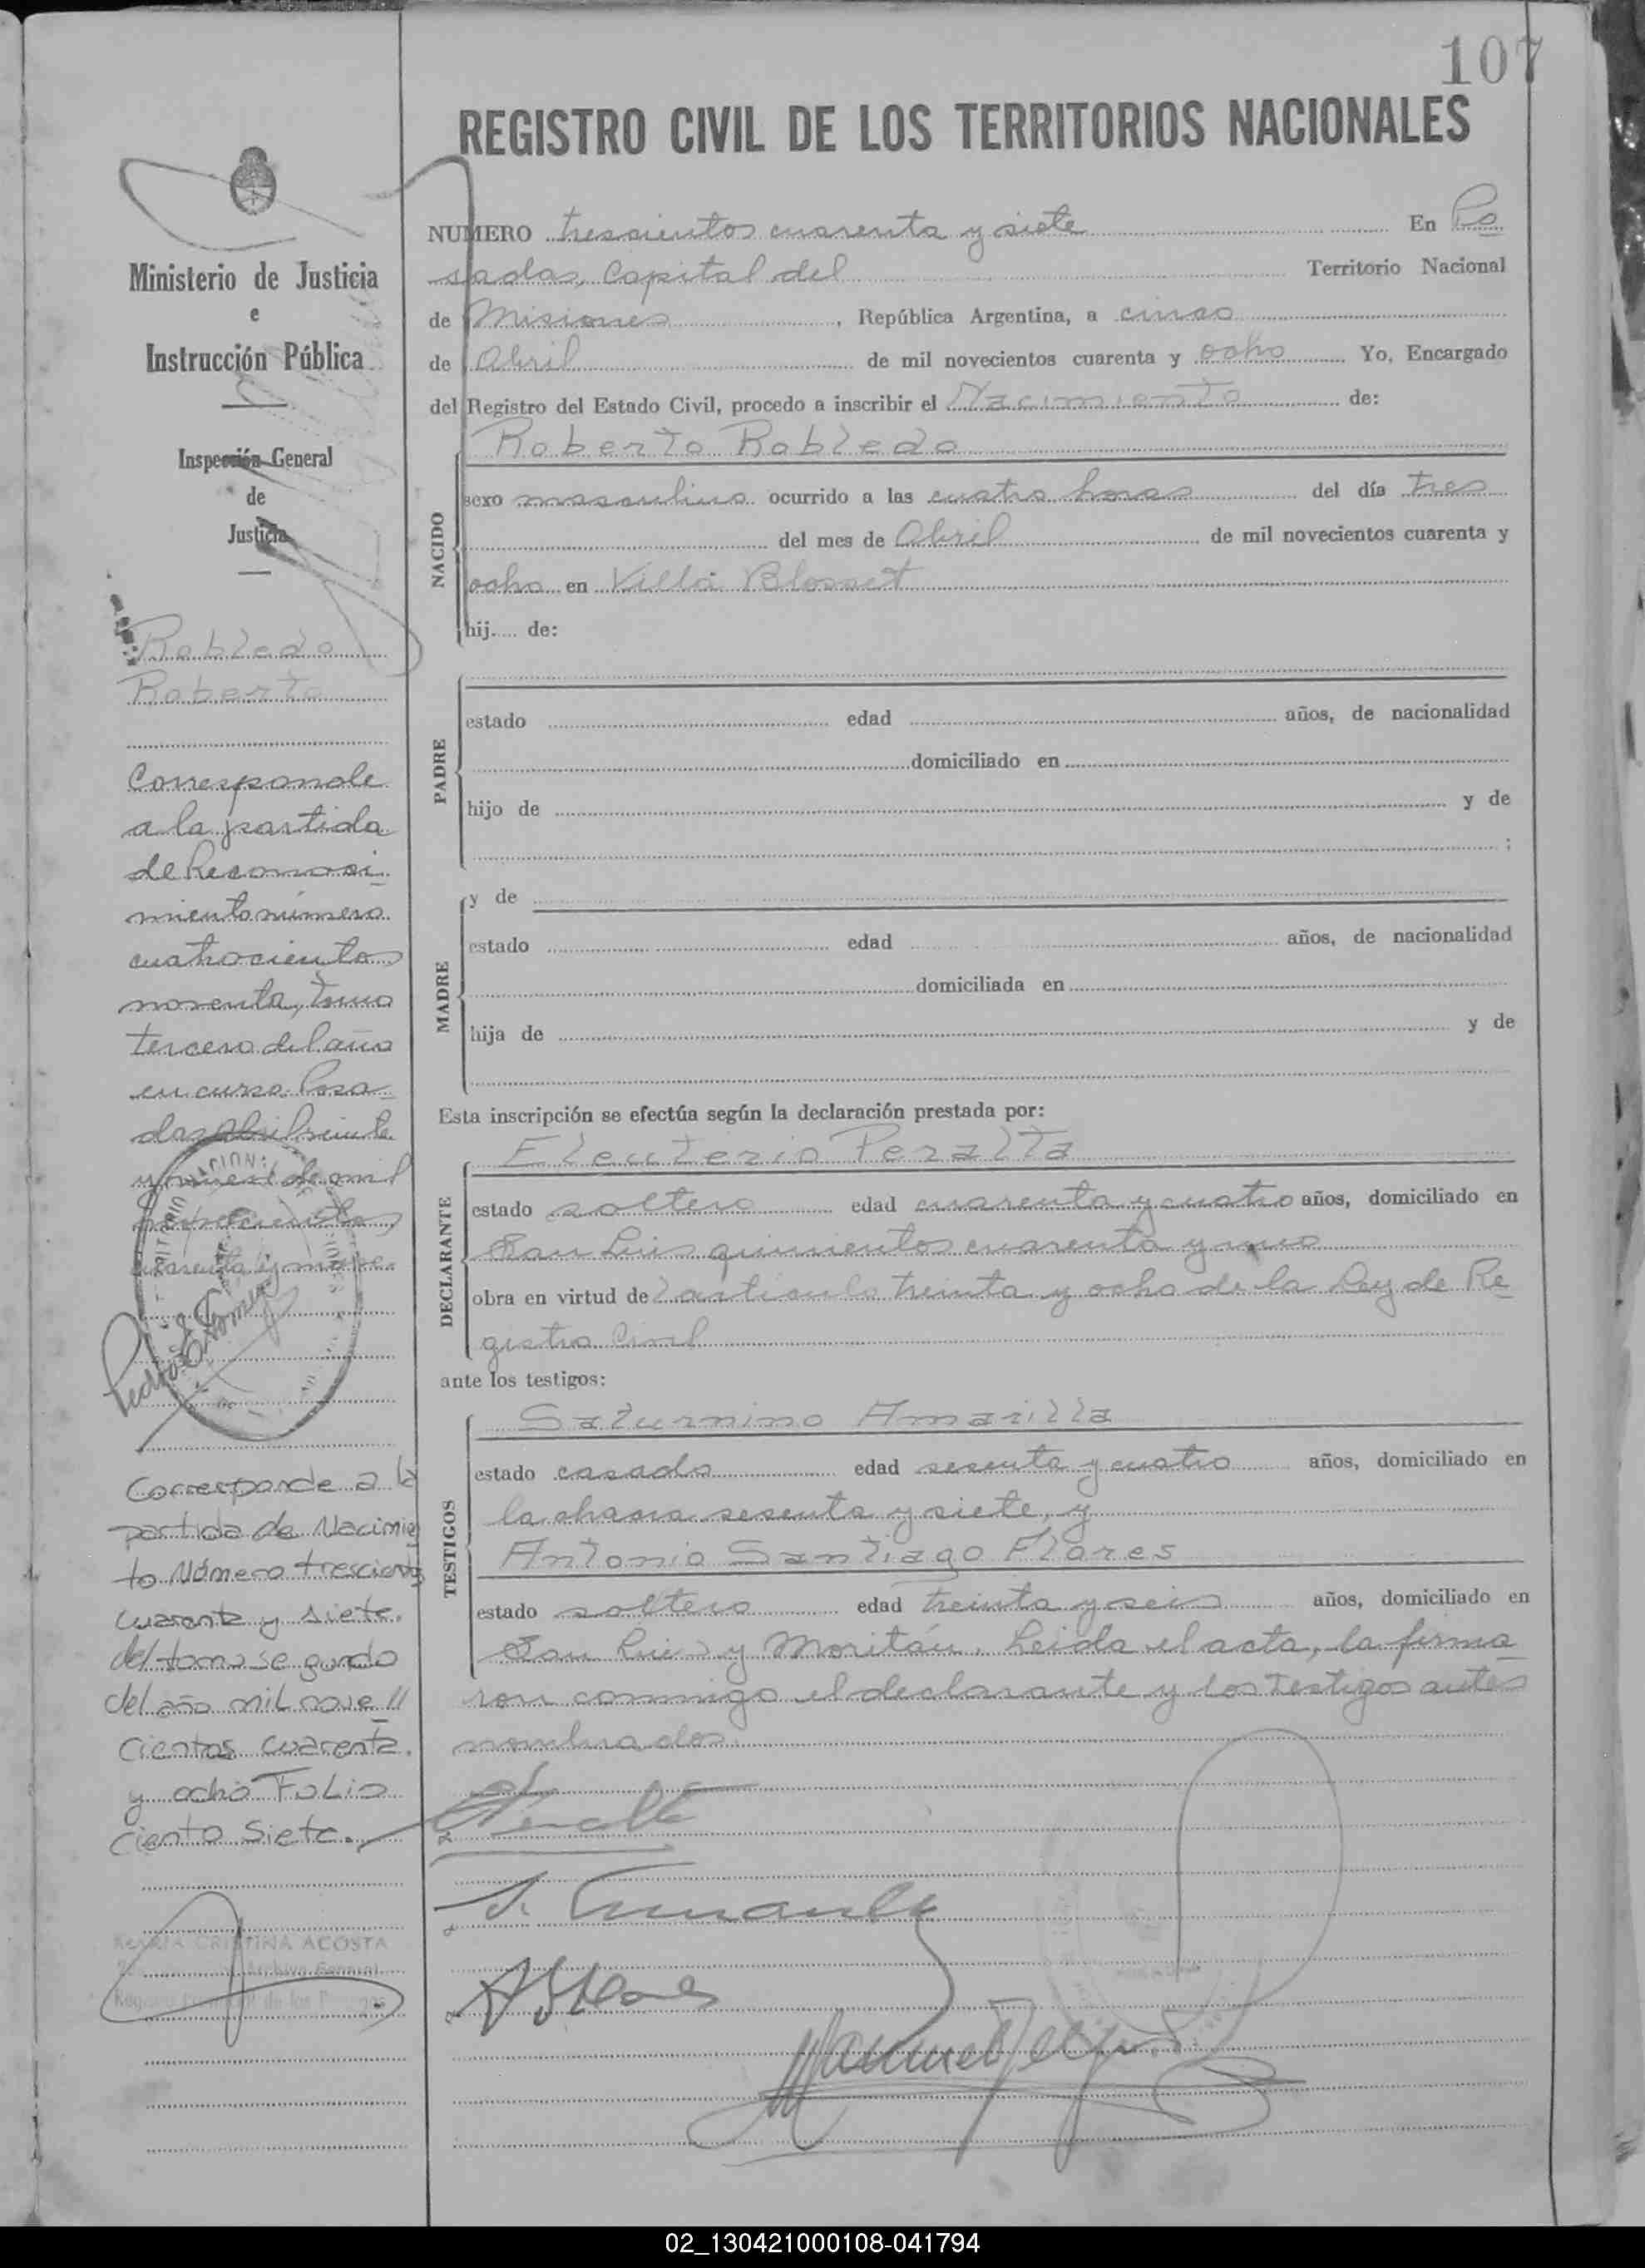 107
REGISTRO CIVIL DE LOS TERRITORIOS NACIONALES
Ministerio de Justicia
e
Instrucción Pública
Inspección General
de
Justicia
Robledo
Roberto
Corresponde
a la partida
de Reconoci-
miento número
cuatrocientos
noventa, tomo
tercero del año
en curso. Posa-
das Abril veinte
y nueve de mil
novecientos
cuarenta y nueve.
Corresponde a la
partida de Nacimien
to Número trescientos
cuarenta y siete.
del tomo segundo
del año mil nove //
cientos cuarenta.
y ocho Folio
ciento siete.
MARIA CRISTINA ACOSTA
Archivo General
NUMERO trescientos cuarenta y siete En Po
sadas, Capital del Territorio Nacional
de Misiones, República Argentina, a cinco
de Abril de mil novecientos cuarenta y ocho Yo, Encargado
del Registro del Estado Civil, procedo a inscribir el Nacimiento de:
Roberto Robledo
NACIDO
sexo masculino ocurrido a las cuatro horas del día tres
del mes de Abril de mil novecientos cuarenta y
ocho en Villa Blosset
hij.... de:
PADRE
estado edad años, de nacionalidad
domiciliado en
hijo de y de
;
MADRE
y de
estado edad años, de nacionalidad
domiciliada en
hija de y de
Esta inscripción se efectúa según la declaración prestada por:
Eleuterio Peralta
DECLARANTE
estado soltero edad cuarenta y cuatro años, domiciliado en
San Luis quinientos cuarenta y uno
obra en virtud del artículo treinta y ocho de la Ley de Re
gistro Civil
ante los testigos:
Saturnino Amarilla
TESTIGOS
estado casado edad sesenta y cuatro años, domiciliado en
la chacra sesenta y siete, y
Antonio Santiago Flores
estado soltero edad treinta y seis años, domiciliado en
San Luis y Moritán. Leida el acta, la firma
ron conmigo el declarante y los testigos antes
nombrados.
02_130421000108-041794